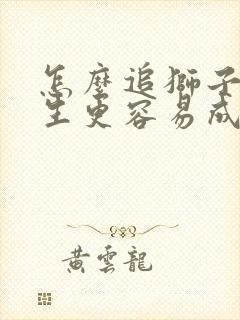 怎麼追獅子
生更容易成
黃雲龍